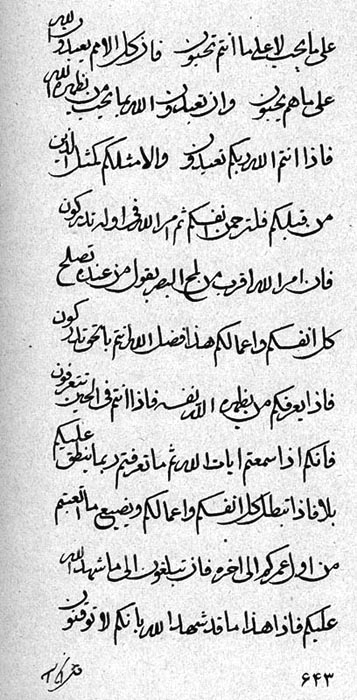 على ما يحب لا على ما انتم تحبون فاذ كل الامم يعبدون الله
على ما هم يحبون وان تعبدون الله بما يحب من يظهره الله
فاذا انتم الله ربكم تعبدون والا مثلكم كمثل الذين
من قبلكم فلترحمن انفسكم ثم امر الله في اوله تدركون
فان امر الله اقرب من لمح البصر يقول من عنده تصلح
كل انفسكم واعمالكم هذا فضل الله انتم بالحق تدركون
فاذا يعرفكم من يظهره الله نفسه فاذا انتم في الحين تتعرفون
فانكم اذا سمعتم ايات الله ثم ما تعرفتم ربما ينطق عليكم
بلا فاذا تبطل كل انفسكم واعمالكم ويضيع ما اتعبتم
من اول عمركم الى اخره فاذ تبلغون الى ما شهد الله
عليكم فاذا هذا ما قد شهد الله بانكم لا توقنون
٦٤٣